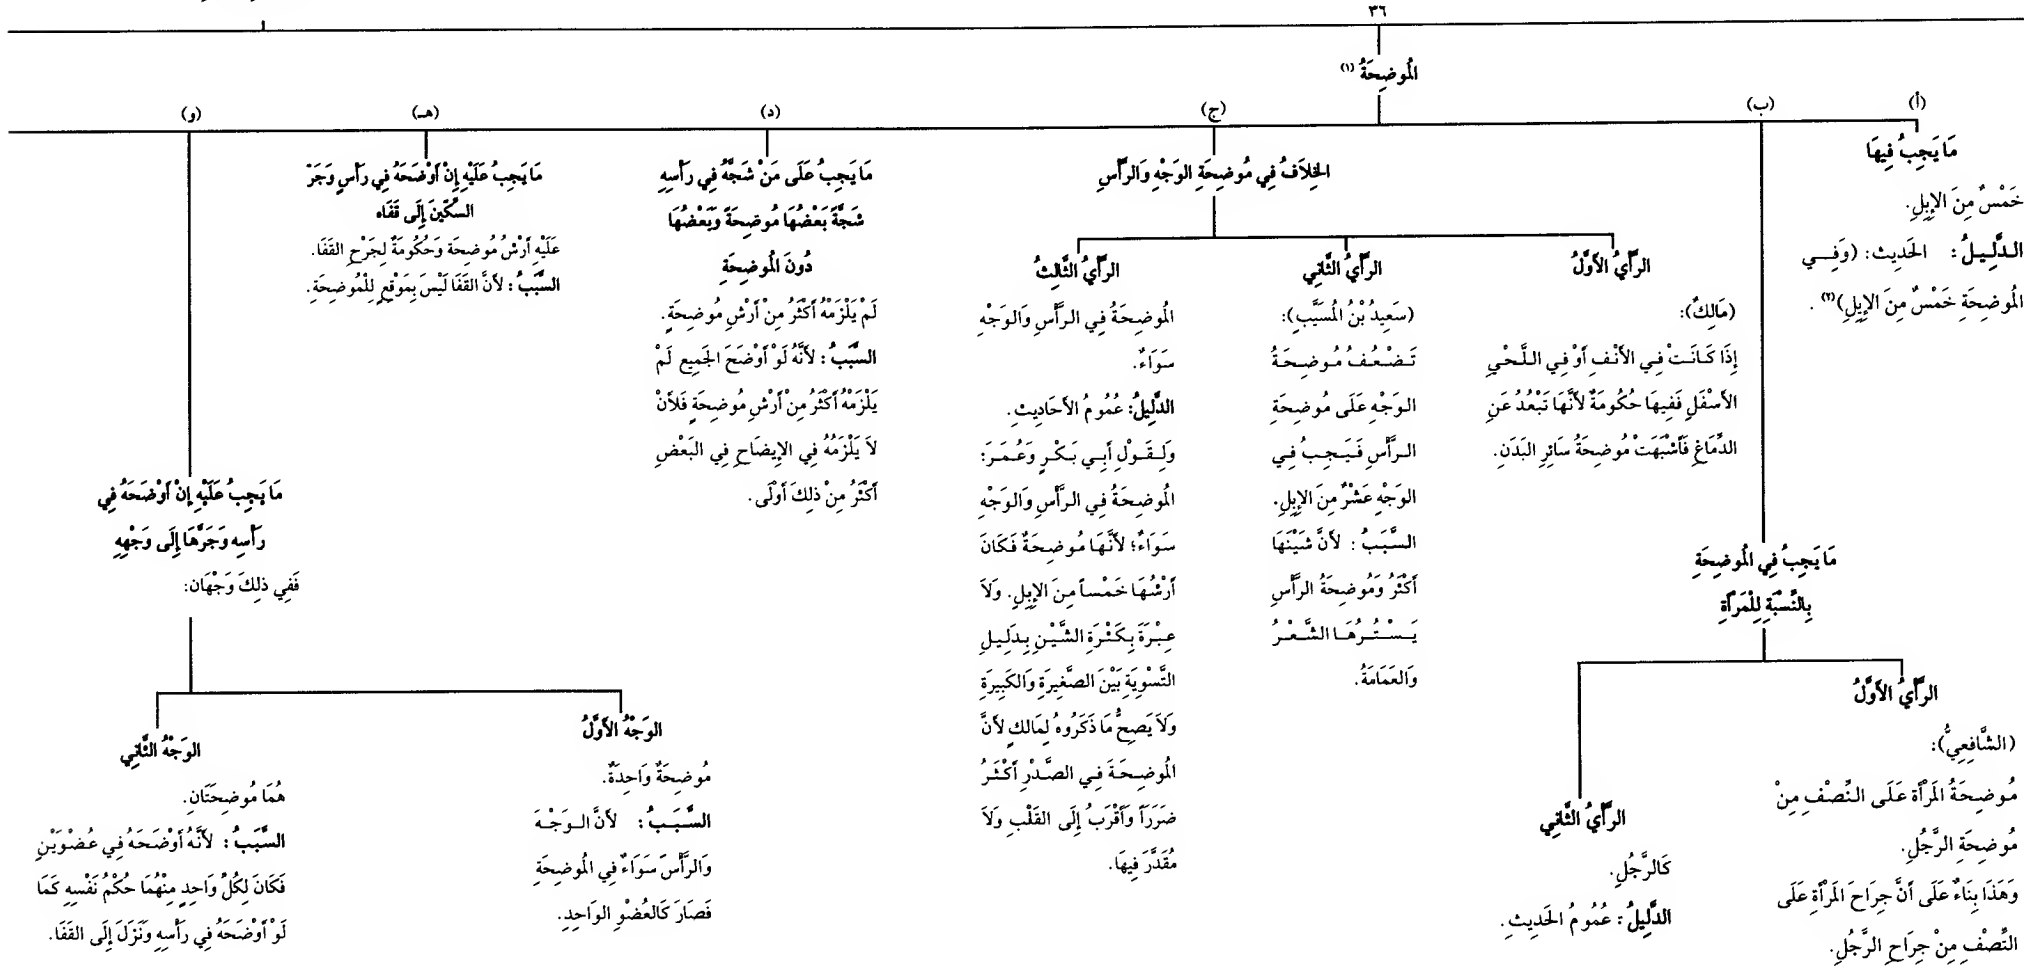 ٣٦
المُوضِحَةُ (١)
(أ)
مَا يَجِبُ فِيهَا
خَمْسٌ مِنَ الإِبِلِ.
الدَّلِيلُ: الحَدِيث: (وَفِي
المُوضِحَةِ خَمْسٌ مِنَ الإِبِلِ)(٢) .
(ب)
مَا يَجِبُ فِي المُوضِحَةِ
بِالنِّسْبَةِ لِلْمَرْأَةِ
الرَّأْيُ الأَوَّلُ
(الشَّافِعِيُّ):
مُوضِحَةُ المَرْأَة عَلَى النِّصْفِ مِنْ
مُوضِحَةِ الرَّجُلِ.
وَهَذَا بِنَاءٌ عَلَى أَنَّ جِرَاحَ المَرْأَةِ عَلَى
النِّصْفِ مِنْ جِرَاحِ الرَّجُلِ.
الرَّأْيُ الثَّانِي
كَالرَّجُلِ.
الدَّلِيلُ: عُمُومُ الحَدِيثِ.
(ج)
الخِلاَفُ فِي مُوضِحَةِ الوَجْهِ وَالرَّأْسِ
الرَّأْيُ الأَوَّلُ
(مَالِكٌ):
إِذَا كَانَتْ فِي الأَنْفِ أَوْ فِي اللَّحْيِ
الأَسْفَلِ فَفِيهَا حُكُومَةٌ لأَنَّهَا تَبْعُدُ عَنِ
الدِّمَاغِ فَأَشْبَهَتْ مُوضِحَةُ سَائِرِ البَدَنِ.
الرَّأْيُ الثَّانِي
(سَعِيدُ بْنُ المُسَيَّبِ):
تَضْعُفُ مُوضِحَةُ
الوَجْهِ عَلَى مُوضِحَةِ
الرَّأْسِ فَيَجِبُ فِي
الوَجْهِ عَشْرٌ مِنَ الإِبِلِ.
السَّبَبُ: لأَنَّ شَيْنَهَا
أَكْثَرُ وَمُوضِحَةُ الرَّأْسِ
يَسْتُرُهَا الشَّعْرُ
وَالعَمَامَةُ.
الرَّأْيُ الثَّالِثُ
المُوضِحَةُ فِي الرَّأْسِ وَالوَجْهِ
سَوَاءٌ.
الدَّلِيلُ: عُمُومُ الأَحَادِيثِ.
وَلِقَوْلِ أَبِي بَكْرٍ وَعُمَرَ:
المُوضِحَةُ فِي الرَّأْسِ وَالوَجْهِ
سَوَاءٌ؛ لأَنَّهَا مُوضِحَةٌ فَكَانَ
أَرْشُهَا خَمْساً مِنَ الإِبِلِ. وَلاَ
عِبْرَةَ بِكَثْرَةِ الشَّيْنِ بِدَلِيلِ
التَّسْوِيَةِ بَيْنَ الصَّغِيرَةِ وَالكَبِيرَةِ
وَلاَ يَصِحُّ مَا ذَكَرُوهُ لِمَالكٍ لأَنَّ
المُوضِحَةَ فِي الصَّدْرِ أَكْثَرُ
ضَرَراً وَأَقْرَبُ إِلَى القَلْبِ وَلاَ
مُقَدَّرَ فِيهَا.
(د)
مَا يَجِبُ عَلَى مَنْ شَجَّهُ فِي رَأْسِهِ
شَجَّةً بَعْضُهَا مُوضِحَةً وَبَعْضُهَا
دُونَ المُوضِحَةِ
لَمْ يَلْزَمْهُ أَكْثَرُ مِنْ أَرْشِ مُوضِحَةٍ.
السَّبَبُ: لأَنَّهُ لَوْ أَوْضَحَ الجَمِيع لَمْ
يَلْزَمْهُ أَكْثَرُ مِنْ أَرْشِ مُوضِحَةٍ فَلأَنْ
لاَ يَلْزَمُهُ فِي الإِيضَاحِ فِي البَعْضِ
أَكْثَرُ مِنْ ذلِكَ أَوْلَى.
(هـ)
مَا يَجِبُ عَلَيْهِ إِنْ أَوْضَحَهُ فِي رَأْسٍ وَجَرّ
السِّكِّينَ إِلَى قَفَاه
عَلَيْهِ أَرْشُ مُوضِحَة وَحُكُومَةٌ لِجَرْحِ القَفَا.
السَّبَبُ: لأَنَّ القَفَا لَيْسَ بِمَوْقِعٍ لِلْمُوضِحَةِ.
(و)
مَا يَجِبُ عَلَيْهِ إِنْ أَوْضَحَهُ فِي
رَأْسِه وَجَرَّهَا إِلَى وَجْهِهِ
فَفِي ذلِكَ وَجْهَان:
الوَجْهُ الأَوَّلُ
مُوضِحَةٌ وَاحِدَةٌ.
السَّبَبُ: لأَنَّ الوَجْهَ
وَالرَّأْسَ سَوَاءٌ فِي المُوضِحَةِ
فَصَارَ كَالعُضْوِ الوَاحِدِ.
الوَجْهُ الثَّانِي
هُمَا مُوضِحَتَانِ.
السَّبَبُ: لأَنَّهُ أَوْضَحَهُ فِي عُضْوَيْنِ
فَكَانَ لِكُلِّ وَاحِدٍ مِنْهُمَا حُكْمُ نَفْسِهِ كَمَا
لَوْ أَوْضَحَهُ فِي رَأْسِهِ وَنَزَلَ إِلَى القَفَا.